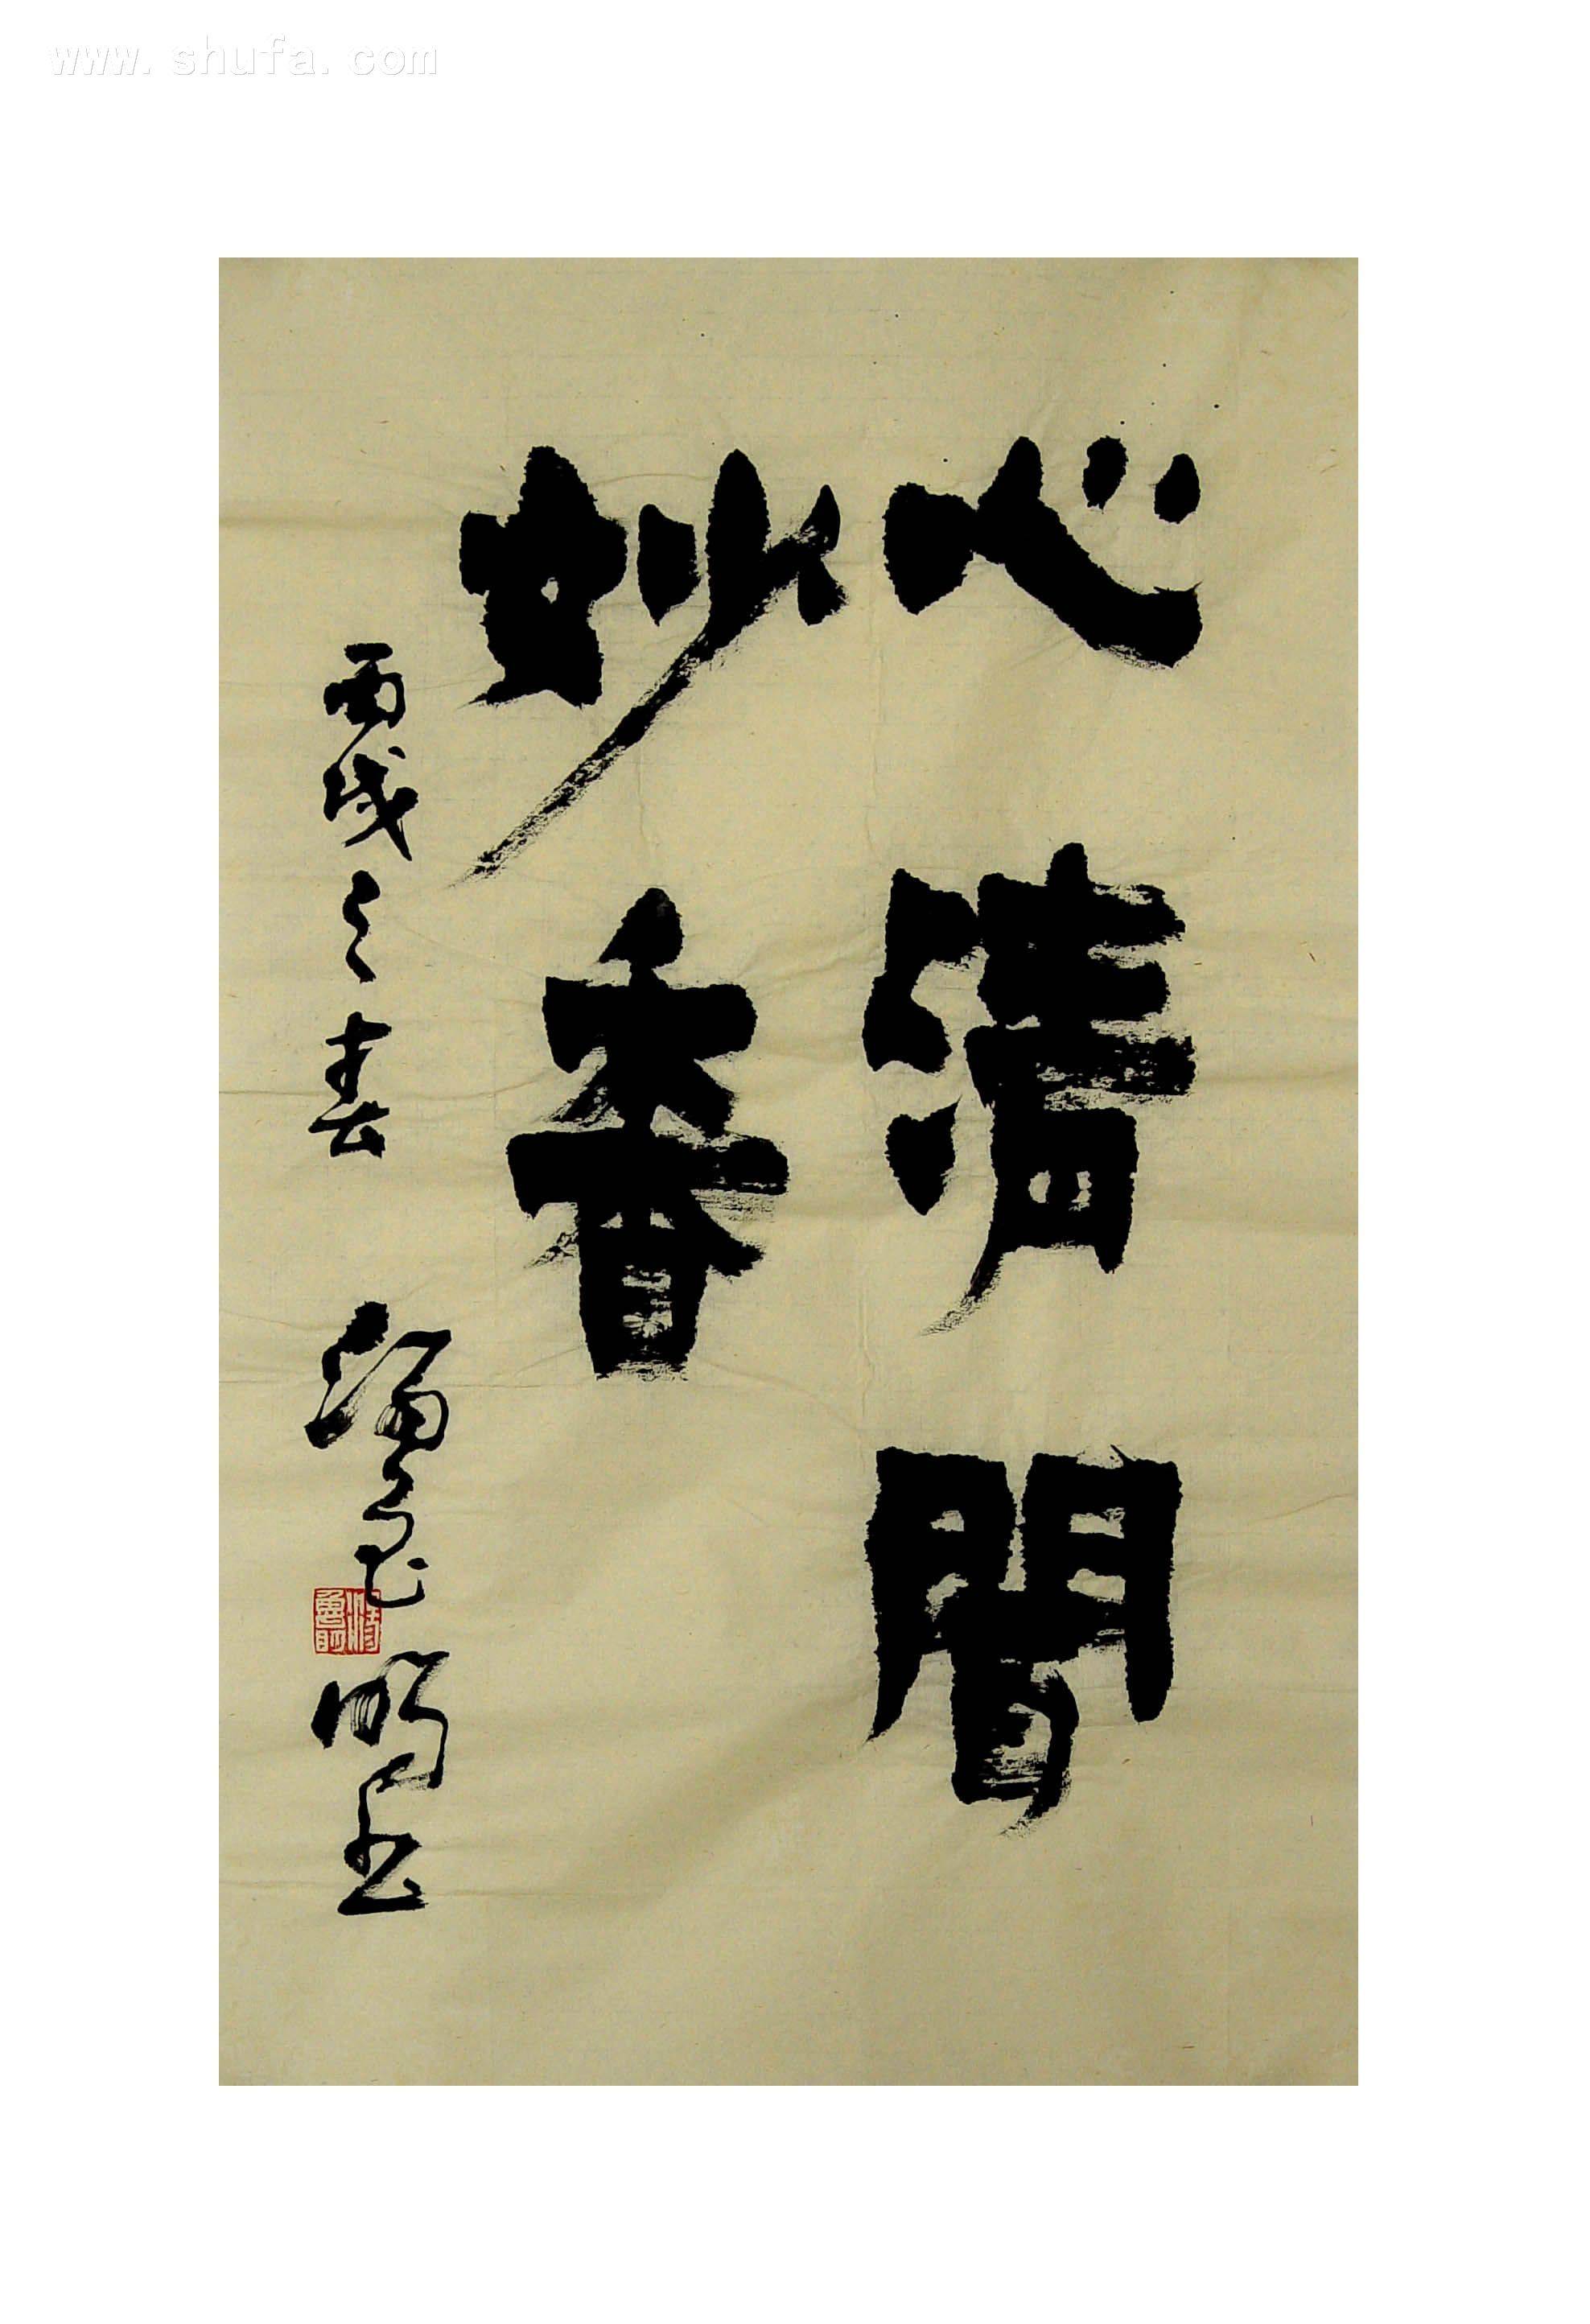 www.shufa.com
心清聞
妙香
丙戌之春
明書